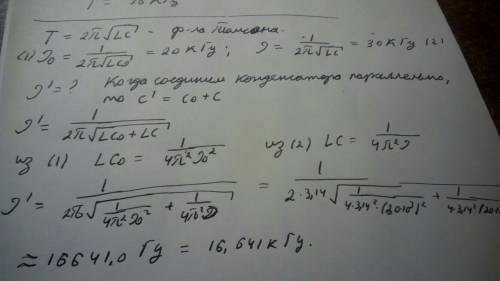 T = 2π√LC' - ф-ла Томсона.
(1) ν₀ = 1/(2π√LC₀) = 20 кГц; ν = 1/(2π√LC) = 30 кГц (2)
ν' = ? Когда соединием конденсатора параллельно,
то C' = C₀ + C
ν' = 1/(2π√(LC₀ + LC))
из (1) LC₀ = 1/(4π²ν₀²) из (2) LC = 1/(4π²ν
ν' = 1/(2π√(1/(4π²ν₀²) + 1/(4π²ν))) = 1/(2·3,14√(1/(4·3,14²·(30·10³)²) + 1/(4·3,14²(20·10
≈ 16641,0 Гц = 16,641 кГц.